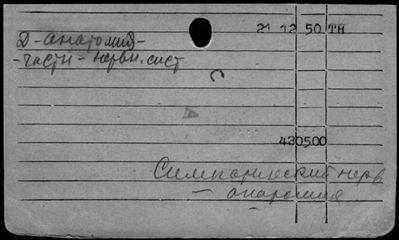 21 12 50 ТН
Д-анатомия-
-части-нервн. сист
430500
Симпатический нерв
— анатомия